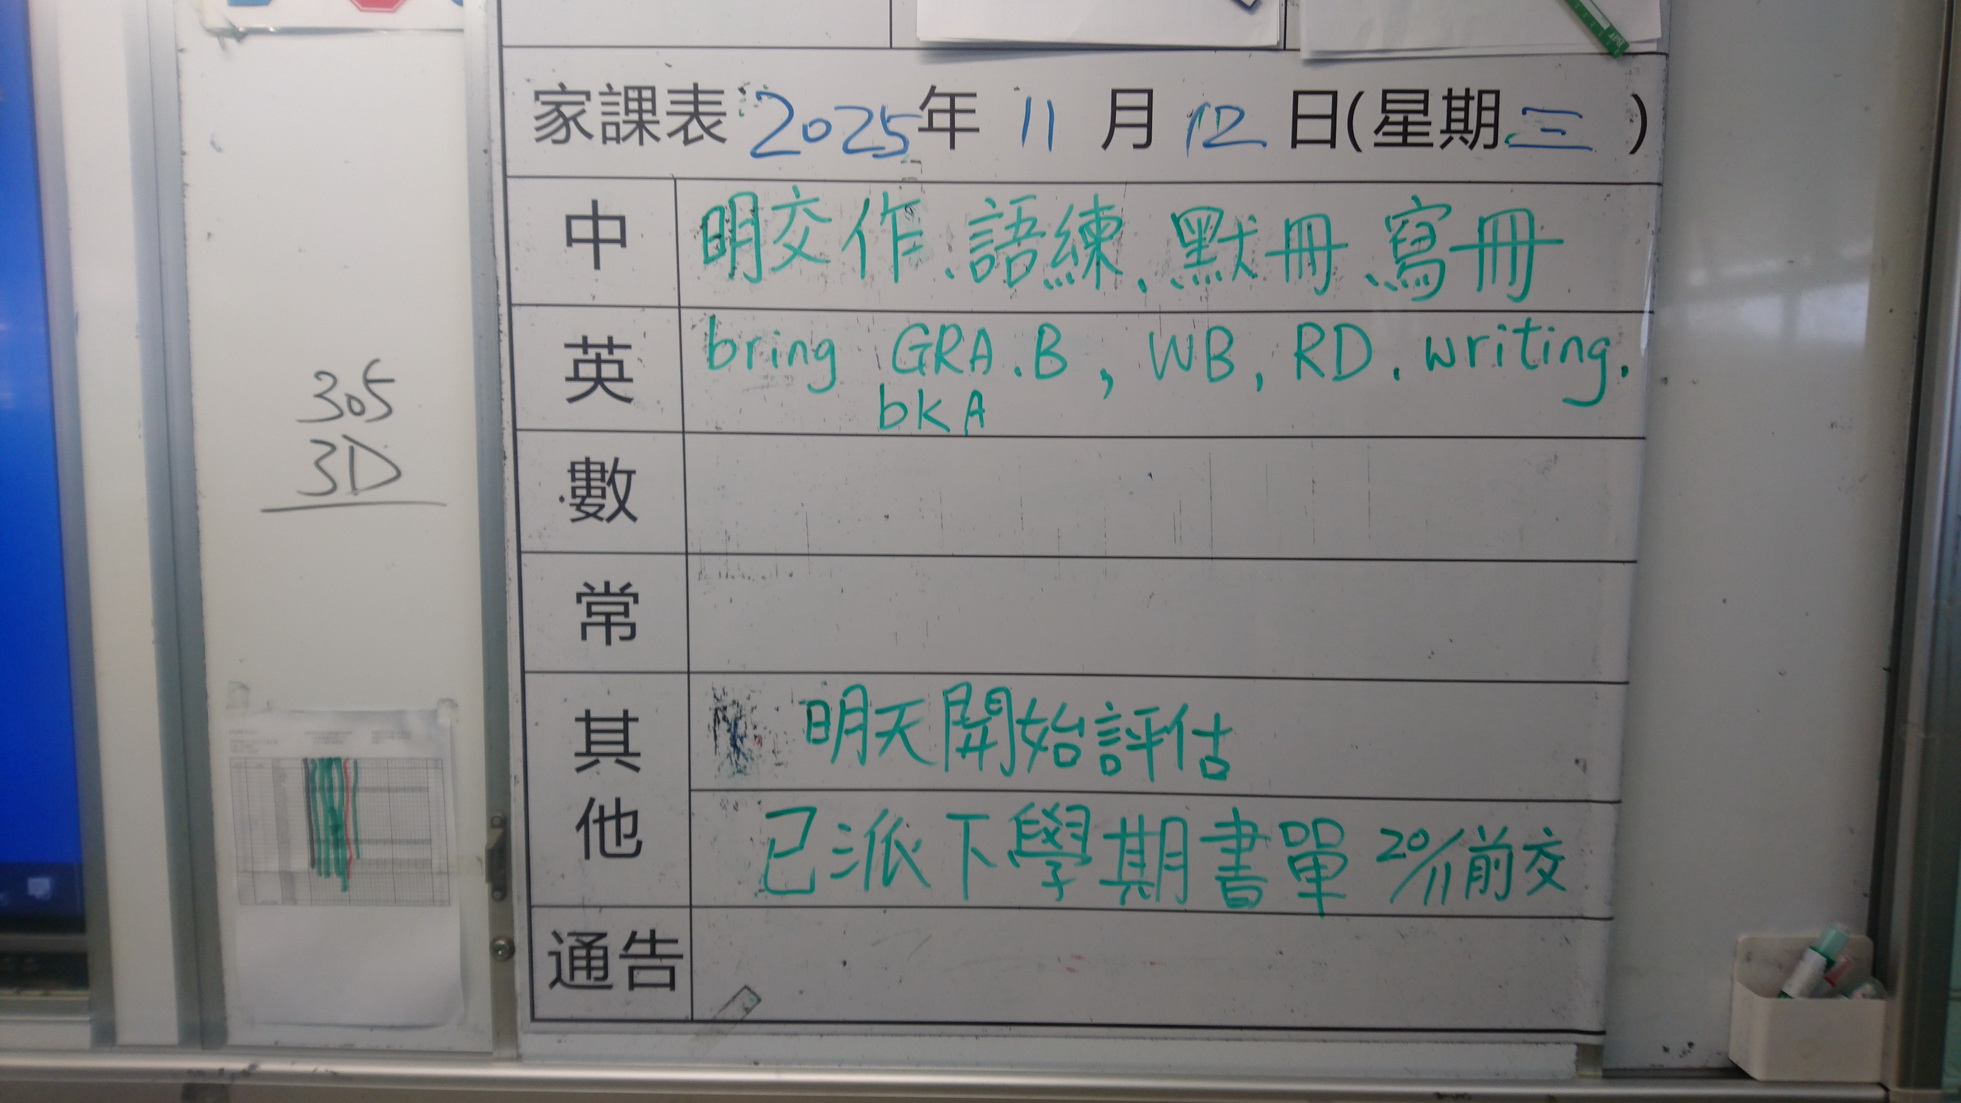 家課表: 2025年 11 月 12 日(星期 三 )
中 明交作、語練、默冊、寫冊
英 bring GRA.B, WB, RD. writing.
bkA
數
常
其他 明天開始評估
已派下學期書單 20/11前交
通告
305
3D